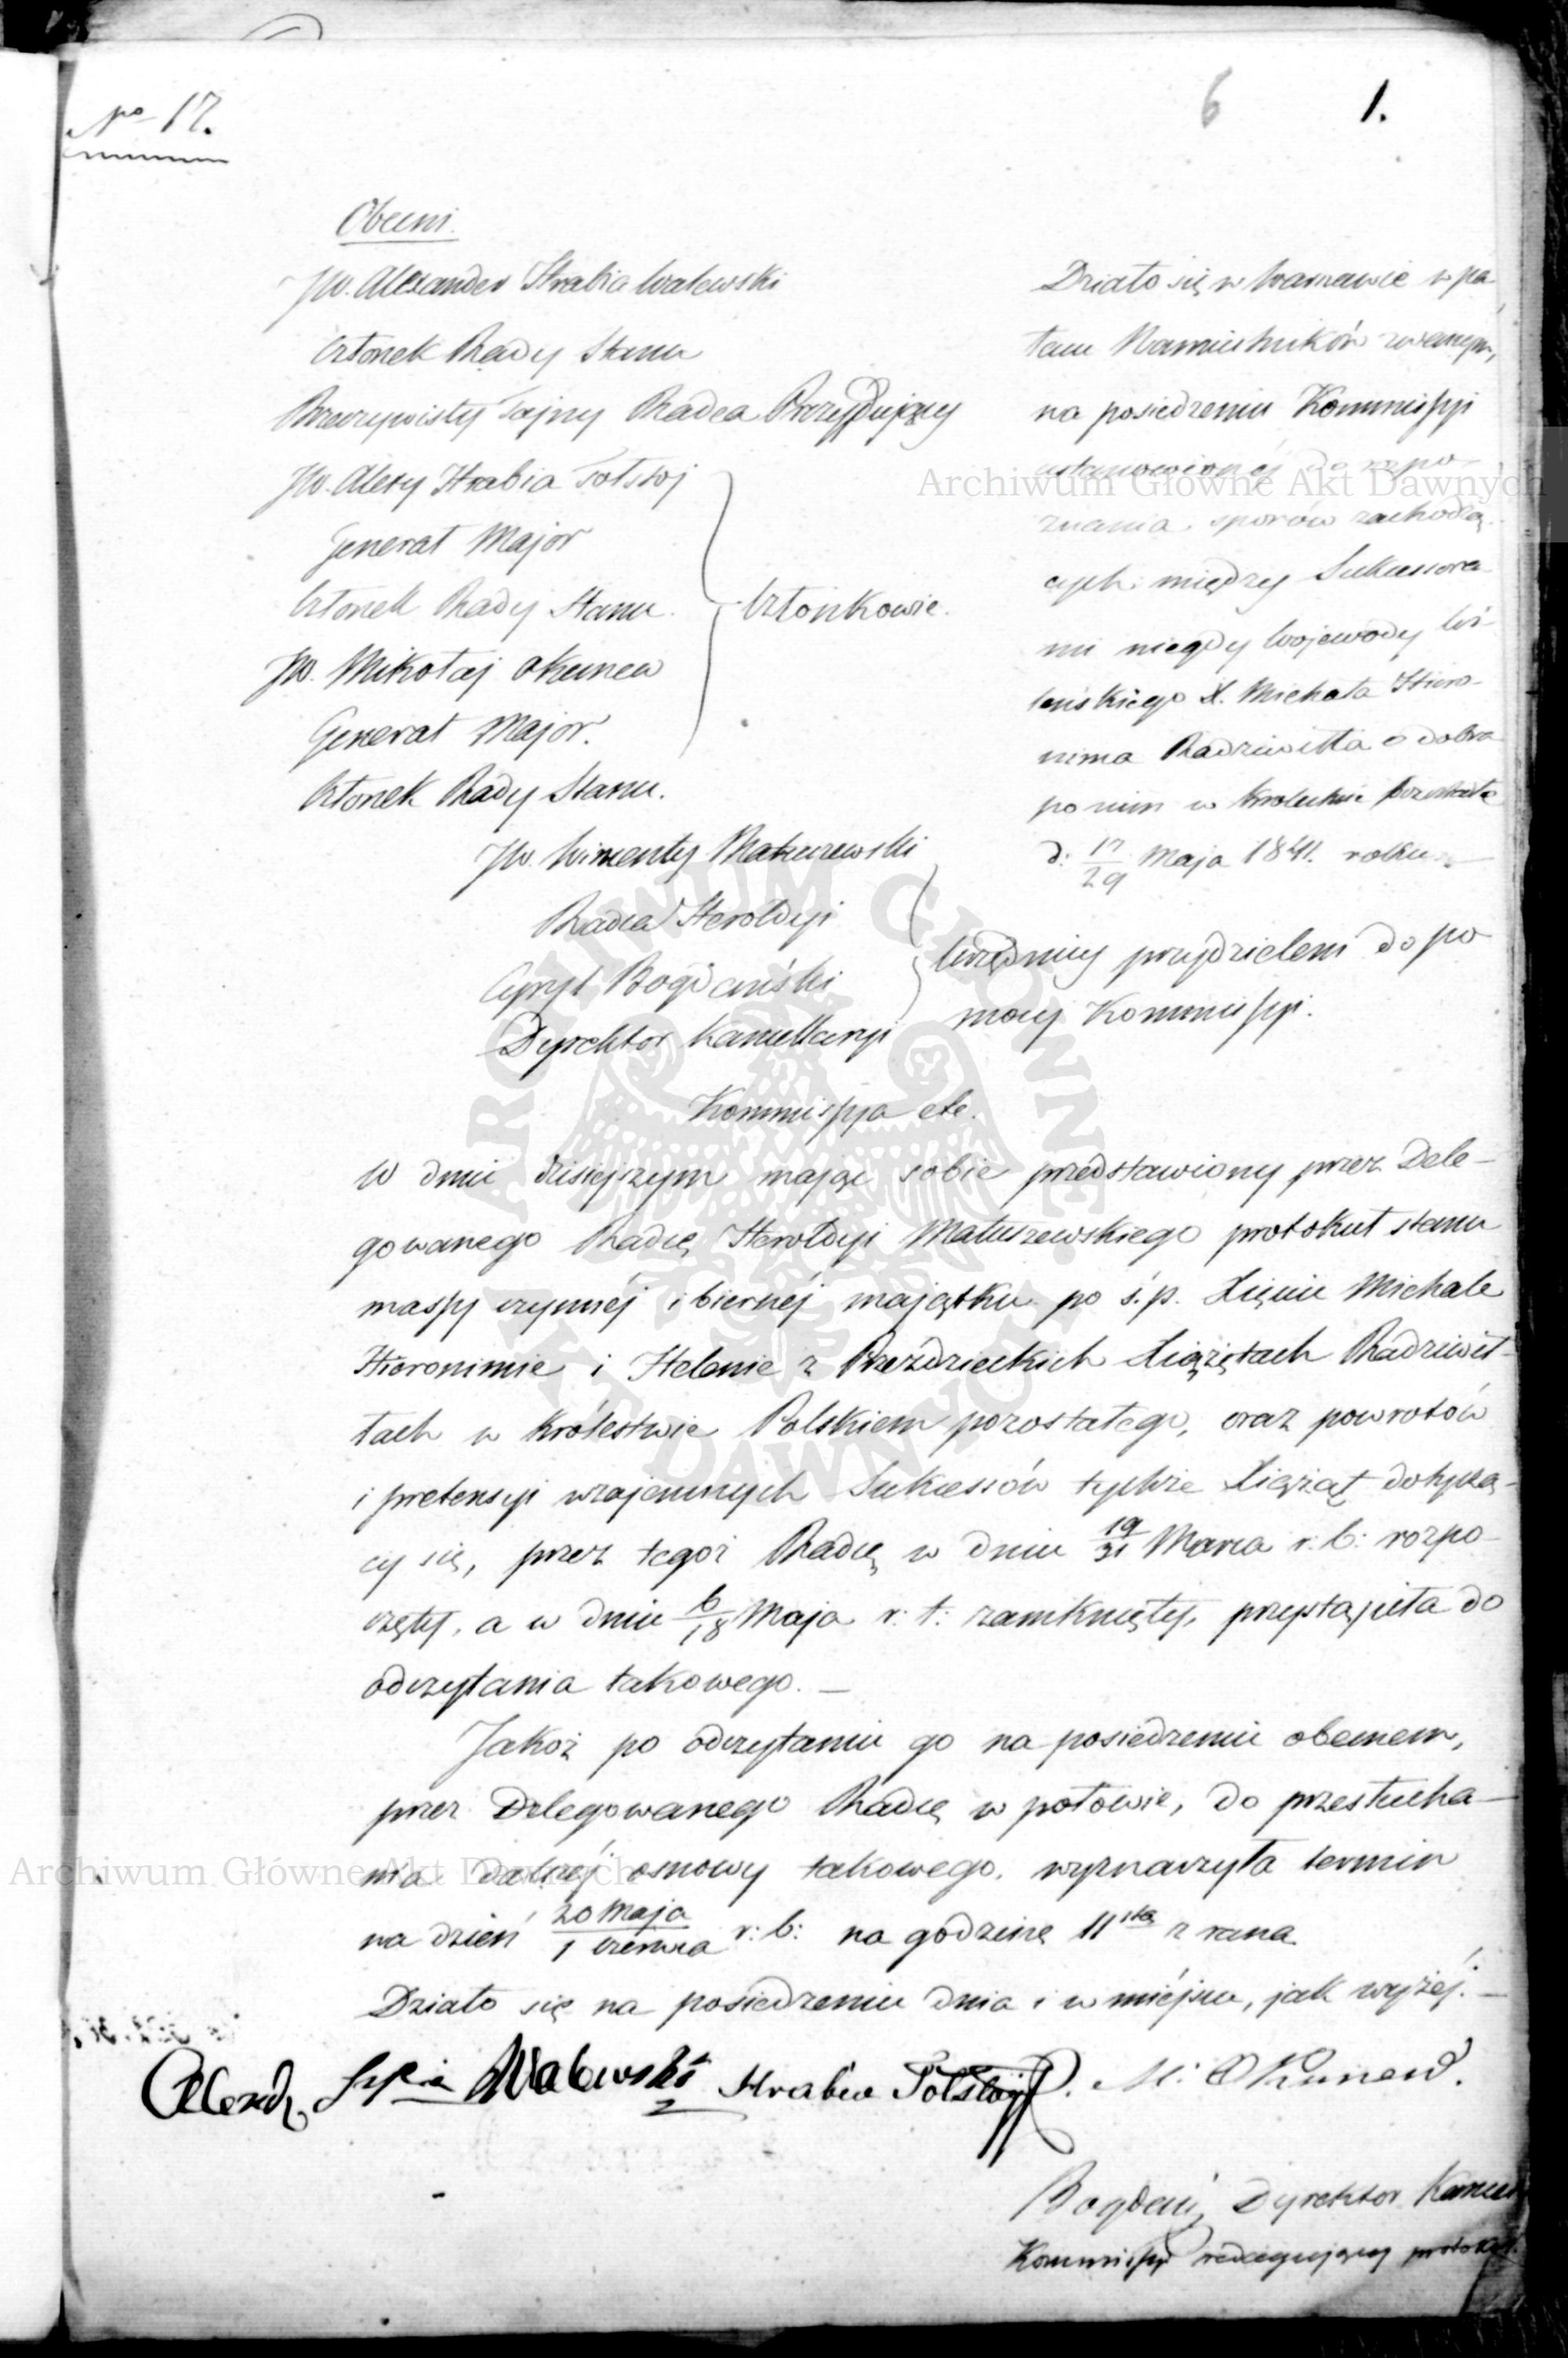 No 17.
6 1.
Obecni.
JW. Alexander Hrabia Walewski
Członek Rady Stanu
Rzeczywisty Tajny Radca Prezydujący
JW. Alexy Hrabia Tołstoj
Generał Major
Członek Rady Stanu.
Członkowie.
JW. Mikołaj Okunew
Generał Major.
Członek Rady Stanu.
JW. Wincenty Matuszewski
Radca Heroldyi
Cyryl Bogdański
Dyrektor Kancellaryi
Urzędnicy przydzieleni do po
mocy Kommissyi.
Działo się w Warszawie w pa
łacu Namiestników zwanym,
na posiedzeniu Kommissyi
ustanowionej do rozpo-
znania sporów zachodzą-
cych między Sukcessora
mi niegdy Wojewody Wi-
leńskiego X. Michała Hiero-
nima Radziwiłła o dobra
po nim w Królestwie pozostałe
d: 17/29 Maja 1841. roku.
Kommissya etc.
W dniu dzisiejszym mając sobie przedstawiony przez Dele-
gowanego Radcę Heroldyi Matuszewskiego protokuł stanu
massy czynnéj i biernéj majątku po ś.p. Xięciu Michale
Hieronimie i Helenie z Przezdzieckich Xiążętach Radziwił-
łach w Królestwie Polskiem pozostałego, oraz powrotów
i pretensyi wzajemnych Sukcessów tychże Xiążąt dotyczą-
cy się, przez tegoż Radcę w dniu 19/31 Marca r: b: rozpo-
częty, a w dniu 6/18 Maja r: t: zamknięty, przystąpiła do
odczytania takowego. —
Jakoż po odczytaniu go na posiedzeniu obecnem,
przez Delegowanego Radcę w połowie, do przesłucha-
nia dalszéj osnowy takowego, wyznaczyła termin
na dzień 20 Maja/1 Czerwca r: b: na godzinę 11stą z rana.
Działo się na posiedzeniu dnia i w miéjscu, jak wyżéj. —
Alexdr Walewski Hrabia Tołstoj. M: Okunew.
Bogdań, Dyrektor Kancel
Kommissyi redagujący protokół.
Archiwum Główne Akt Dawnych
Archiwum Główne Akt Dawnych
ARCHIWUM GŁÓWNE AKT DAWNYCH